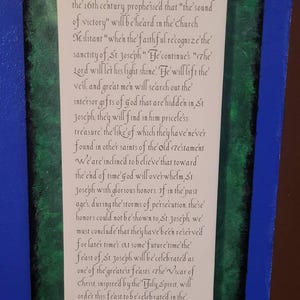 the 16th century prophesied that "the sound
of victory" will be heard in the Church
Militant "when the faithful recognize the
sanctity of St Joseph" He continues "The
Lord will let his light shine. He will lift the
veil, and great men will search out the
interior gifts of God that are hidden in St
Joseph; they will find in him priceless
treasure the like of which they have never
found in other saints of the Old Testament
We are inclined to believe that toward
the end of time God will overwhelm St
Joseph with glorious honors. If in the past
ages during the storms of persecution these
honors could not be shown to St Joseph, we
must conclude that they have been reserved
for later times. At some future time the
feast of St Joseph will be celebrated as
one of the greatest feasts. The Vicar of
Christ, inspired by the Holy Spirit, will
order this feast to be celebrated in the